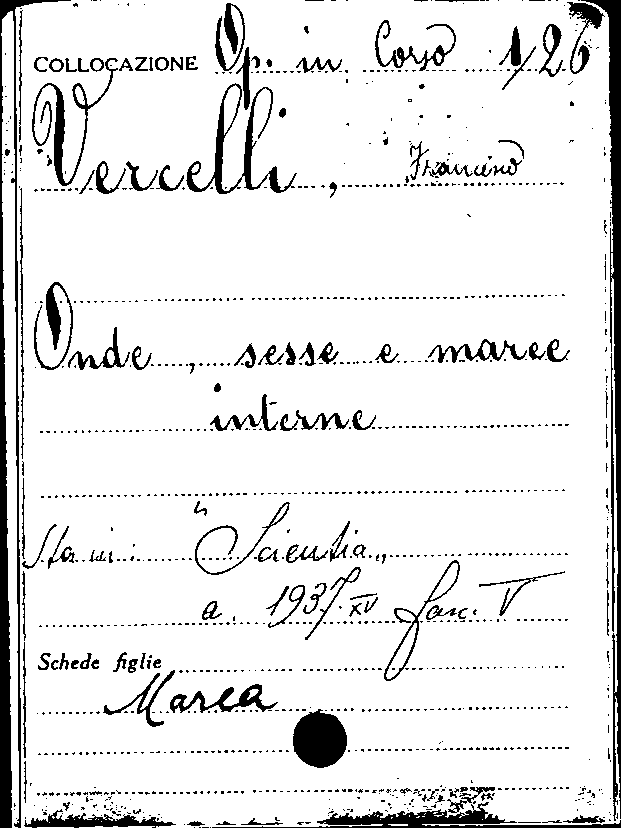 COLLOCAZIONE Op. in Corso 1/26
Vercelli, Francesco
Onde, sesse e maree
interne
Sta in: "Scientia"
a. 1937. XV fasc. V
Schede figlie
Marea